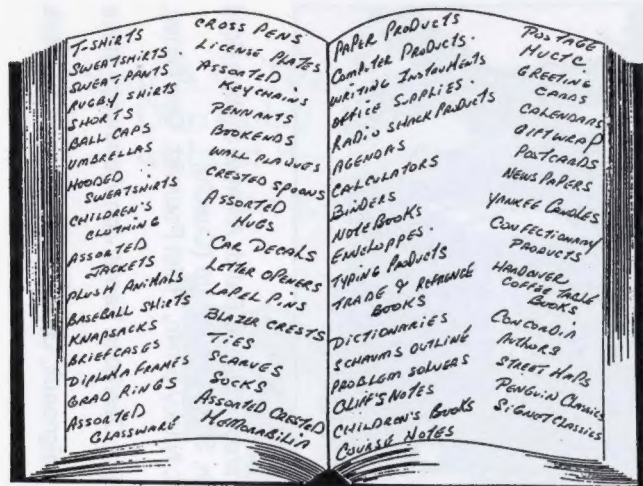 T-SHIRTS
SWEATSHIRTS.
SWEAT PANTS
RUGBY SHIRTS
SHORTS
BALL CAPS
UMBRELLAS
HOODED
SWEATSHIRTS
CHILDREN'S
CLOTHING
ASSORTED
JACKETS
PLUSH ANIMALS
BASEBALL SHIRTS
KNAPSACKS
BRIEFCASES
DIPLOMA FRAMES
GRAD RINGS
ASSORTED
GLASSWARE
CROSS PENS
LICENSE PLATES
ASSORTED
KEYCHAINS
PENNANTS
BOOKENDS
WALL PLAQUES
CRESTED SPOONS
ASSORTED
MUGS
CAR DECALS
LETTER OPENERS
LAPEL PINS
BLAZER CRESTS
TIES
SCARVES
SOCKS
ASSORTED CRESTED
MEMORABILIA
PAPER PRODUCTS
COMPUTER PRODUCTS.
WRITING INSTRUMENTS
OFFICE SUPPLIES.
RADIO SHACK PRODUCTS
AGENDAS
CALCULATORS
BINDERS
NOTEBOOKS
ENVELOPPES.
TYPING PRODUCTS
TRADE & REFERENCE
BOOKS
DICTIONARIES
SCHAUMS OUTLINE
PROBLEM SOLVERS
CLIFF'S NOTES
CHILDREN'S BOOKS
COURSE NOTES
POSTAGE
MUCTC.
GREETING
CARDS
CALENDARS
GIFTWRAP
POSTCARDS
NEWSPAPERS
YANKEE CANDLES
CONFECTIONARY
PRODUCTS
HARDCOVER
COFFEE TABLE
BOOKS
CONCORDIA
AUTHORS
STREET MAPS
PENGUIN CLASSICS
SIGNET CLASSICS